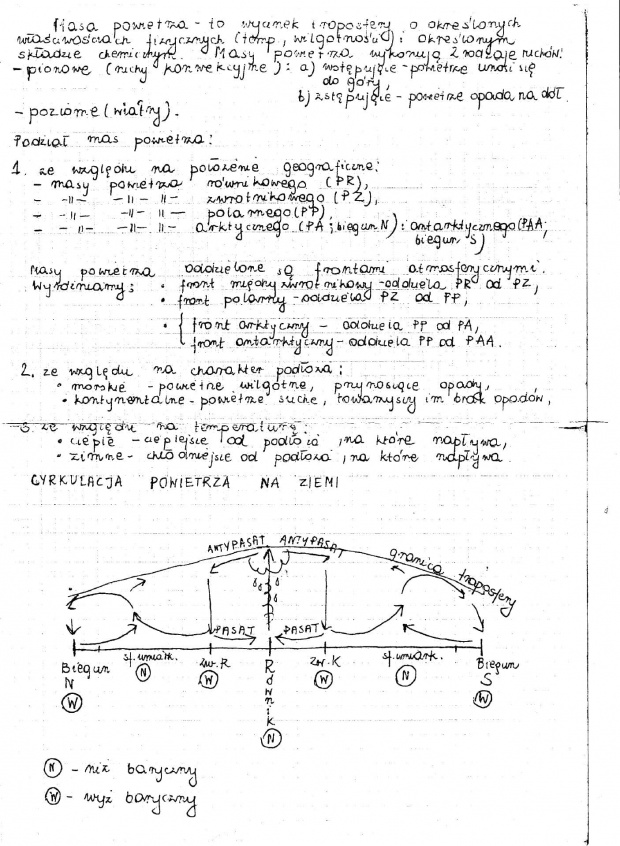 Masa powietrza - to wycinek troposfery o określonych
właściwościach fizycznych (temp., wilgotność) i określonym
składzie chemicznym. Masy powietrza wykonują 2 rodzaje ruchów:
- pionowe (ruchy konwekcyjne): a) wstępujące - powietrze unosi się
do góry,
b) zstępujące - powietrze opada na dół.
- poziome (wiatry).
Podział mas powietrza:
1. ze względu na położenie geograficzne:
- masy powietrza równikowego (PR),
- -11- -11-11- zwrotnikowego (PZ),
- -11- -11-11- polarnego (PP),
- -11- -11-11- arktycznego (PA; biegun N) i antarktycznego (PAA;
biegun S)
Masy powietrza oddzielone są frontami atmosferycznymi.
Wyróżniamy: • front międzyzwrotnikowy - oddziela PR od PZ,
• front polarny - oddziela PZ od PP,
• { front arktyczny - oddziela PP od PA,
front antarktyczny - oddziela PP od PAA.
2. ze względu na charakter podłoża:
• morskie - powietrze wilgotne, przynoszące opady,
• kontynentalne - powietrze suche, towarzyszy im brak opadów,
3. ze względu na temperaturę:
• ciepłe - cieplejsze od podłoża, na które napływa,
• zimne - chłodniejsze od podłoża, na które napływa.
CYRKULACJA POWIETRZA NA ZIEMI
ANTYPASAT ANTYPASAT
granica troposfery
PASAT PASAT
Biegun N W
sf. umiark. N
zw. R W
Równik N
zw. K W
sf. umiark. N
Biegun S W
N - niż baryczny
W - wyż baryczny